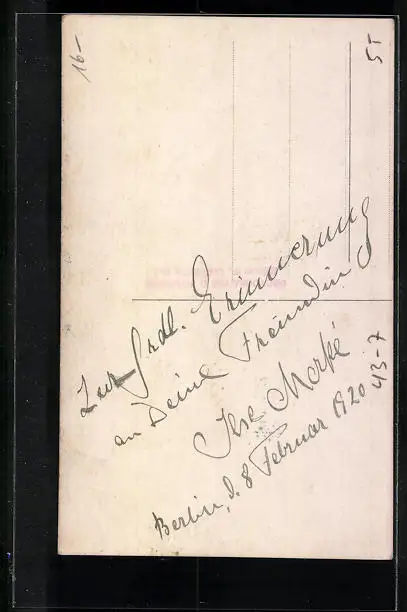 16-
5T
Zur frdl. Erinnerung
an Deine Freundin
Ilse Merké
Berlin, d. 8 Februar 1920
43-7